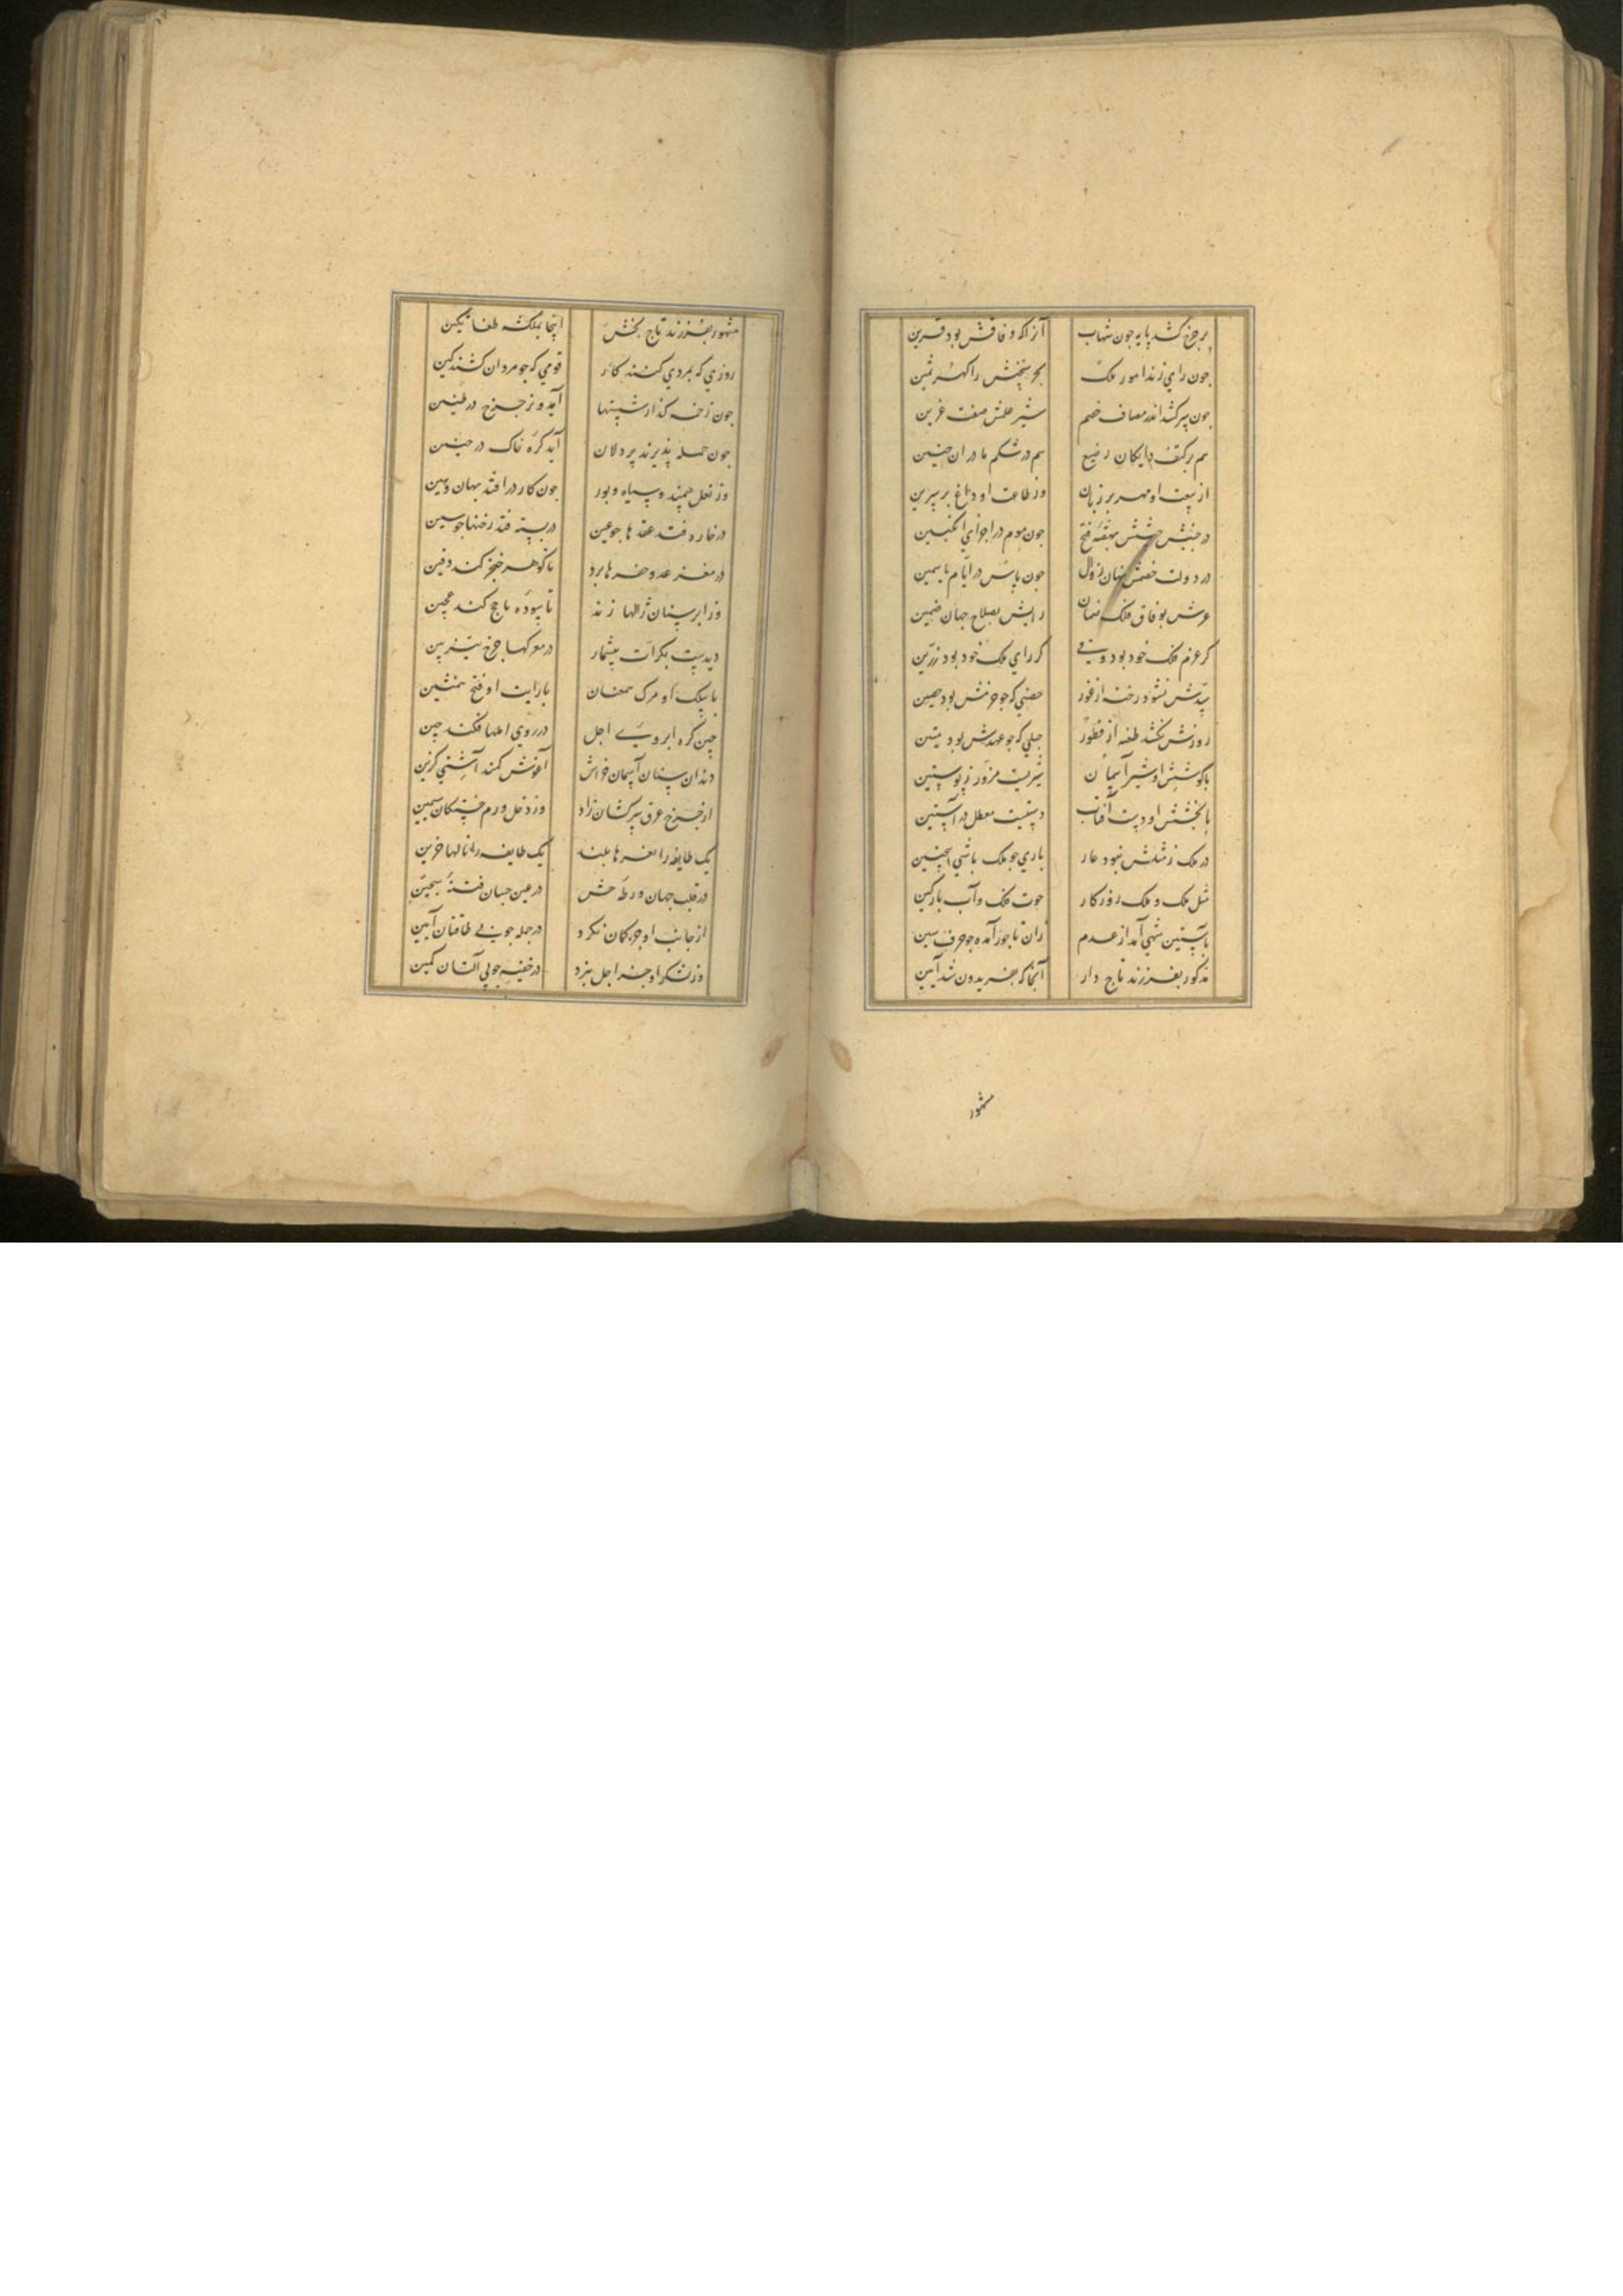 بر چرخ کشد پایه چون شهاب آنرا که وفاقش بود قرین
چون رای زند امور ملک بحر سخنش را گهر ثمین
چون سر کشد اندر مصاف خصم شیر علمش صفت عرین
هم بر کتف دایگان رضیع هم در شکم مادران جنین
از بیعت او مهر بر زبان وز طاعت او داغ بر سرین
در جنبش جیشش نهفته فتح چون موم در اجزای انگبین
در دولت خصمش نهان زوال چون یاس در ایام یاسمین
عزمش بوفاق فلک ضمان رایش بصلاح جهان ضمین
کر عزم فلک خود بود کر رای ملک خود بود رزین
سدش نشود رخنه از فتور حصنی که چو حزمش بود حصین
روزش نکشد طعنه از فطور حبلی که چو عهدش بود متین
با کوشش او شیر آسمان شیریست مزور ز پوستین
با بخشش او دست آفتاب دستیست معطل در آستین
در ملک ز مثلش نبود عار باری چو ملک باشی اینچنین
مثل ملک و ملک روزکار حوت فلک و آب پارکین
با آستین شهی آمد از عدم زان تاجور آمد چو حرف سین
مذکور بفرزند تاج دار آنجا که فریدون شد آبتین
مشهور
مشهور بفرزند تاج بخش اینجا بملکشه طغانتکین
روزی که بمردی کنند کار قومی که چو مردان کشند کین
چون زخمه گذارند شستها آید وز چرخ در طنین
چون حمله پذیرند پردلان آید کره خاک در حنین
وز نعل سمند و سیاه و بور چون کار در افتد بهان و هین
در خاره فتد عقدها چو عین در بسته فتد رخنها چو سین
در مغز عدو حفرها برد تا گوهر خنجر کند دفین
وز ابر سنان ژالها زند تا سوده تاج کند عجین
دیدست بکرات بیشمار در معرکها چرخ تیز بین
با بیلک او مرگ همعنان با رایت او فتح همنشین
چین گره ابروی اجل در روی املها فکند چین
دندان سنان آسمان خراش آغوش کمند آشتی گزین
از چرخ عرق سرکشان نزار وز دخل ورم خستکان سمین
یک طایفه را نعرها بلند یک طایفه را نالها حزین
در قلب چنان ورطه حش در عین چنان فتنه سجین
از جانب او جز کمان نکرد در جمله چو بی طاقتان انین
وز لشکر او جز اجل نبرد در خفیه چو بی آلتان کمین